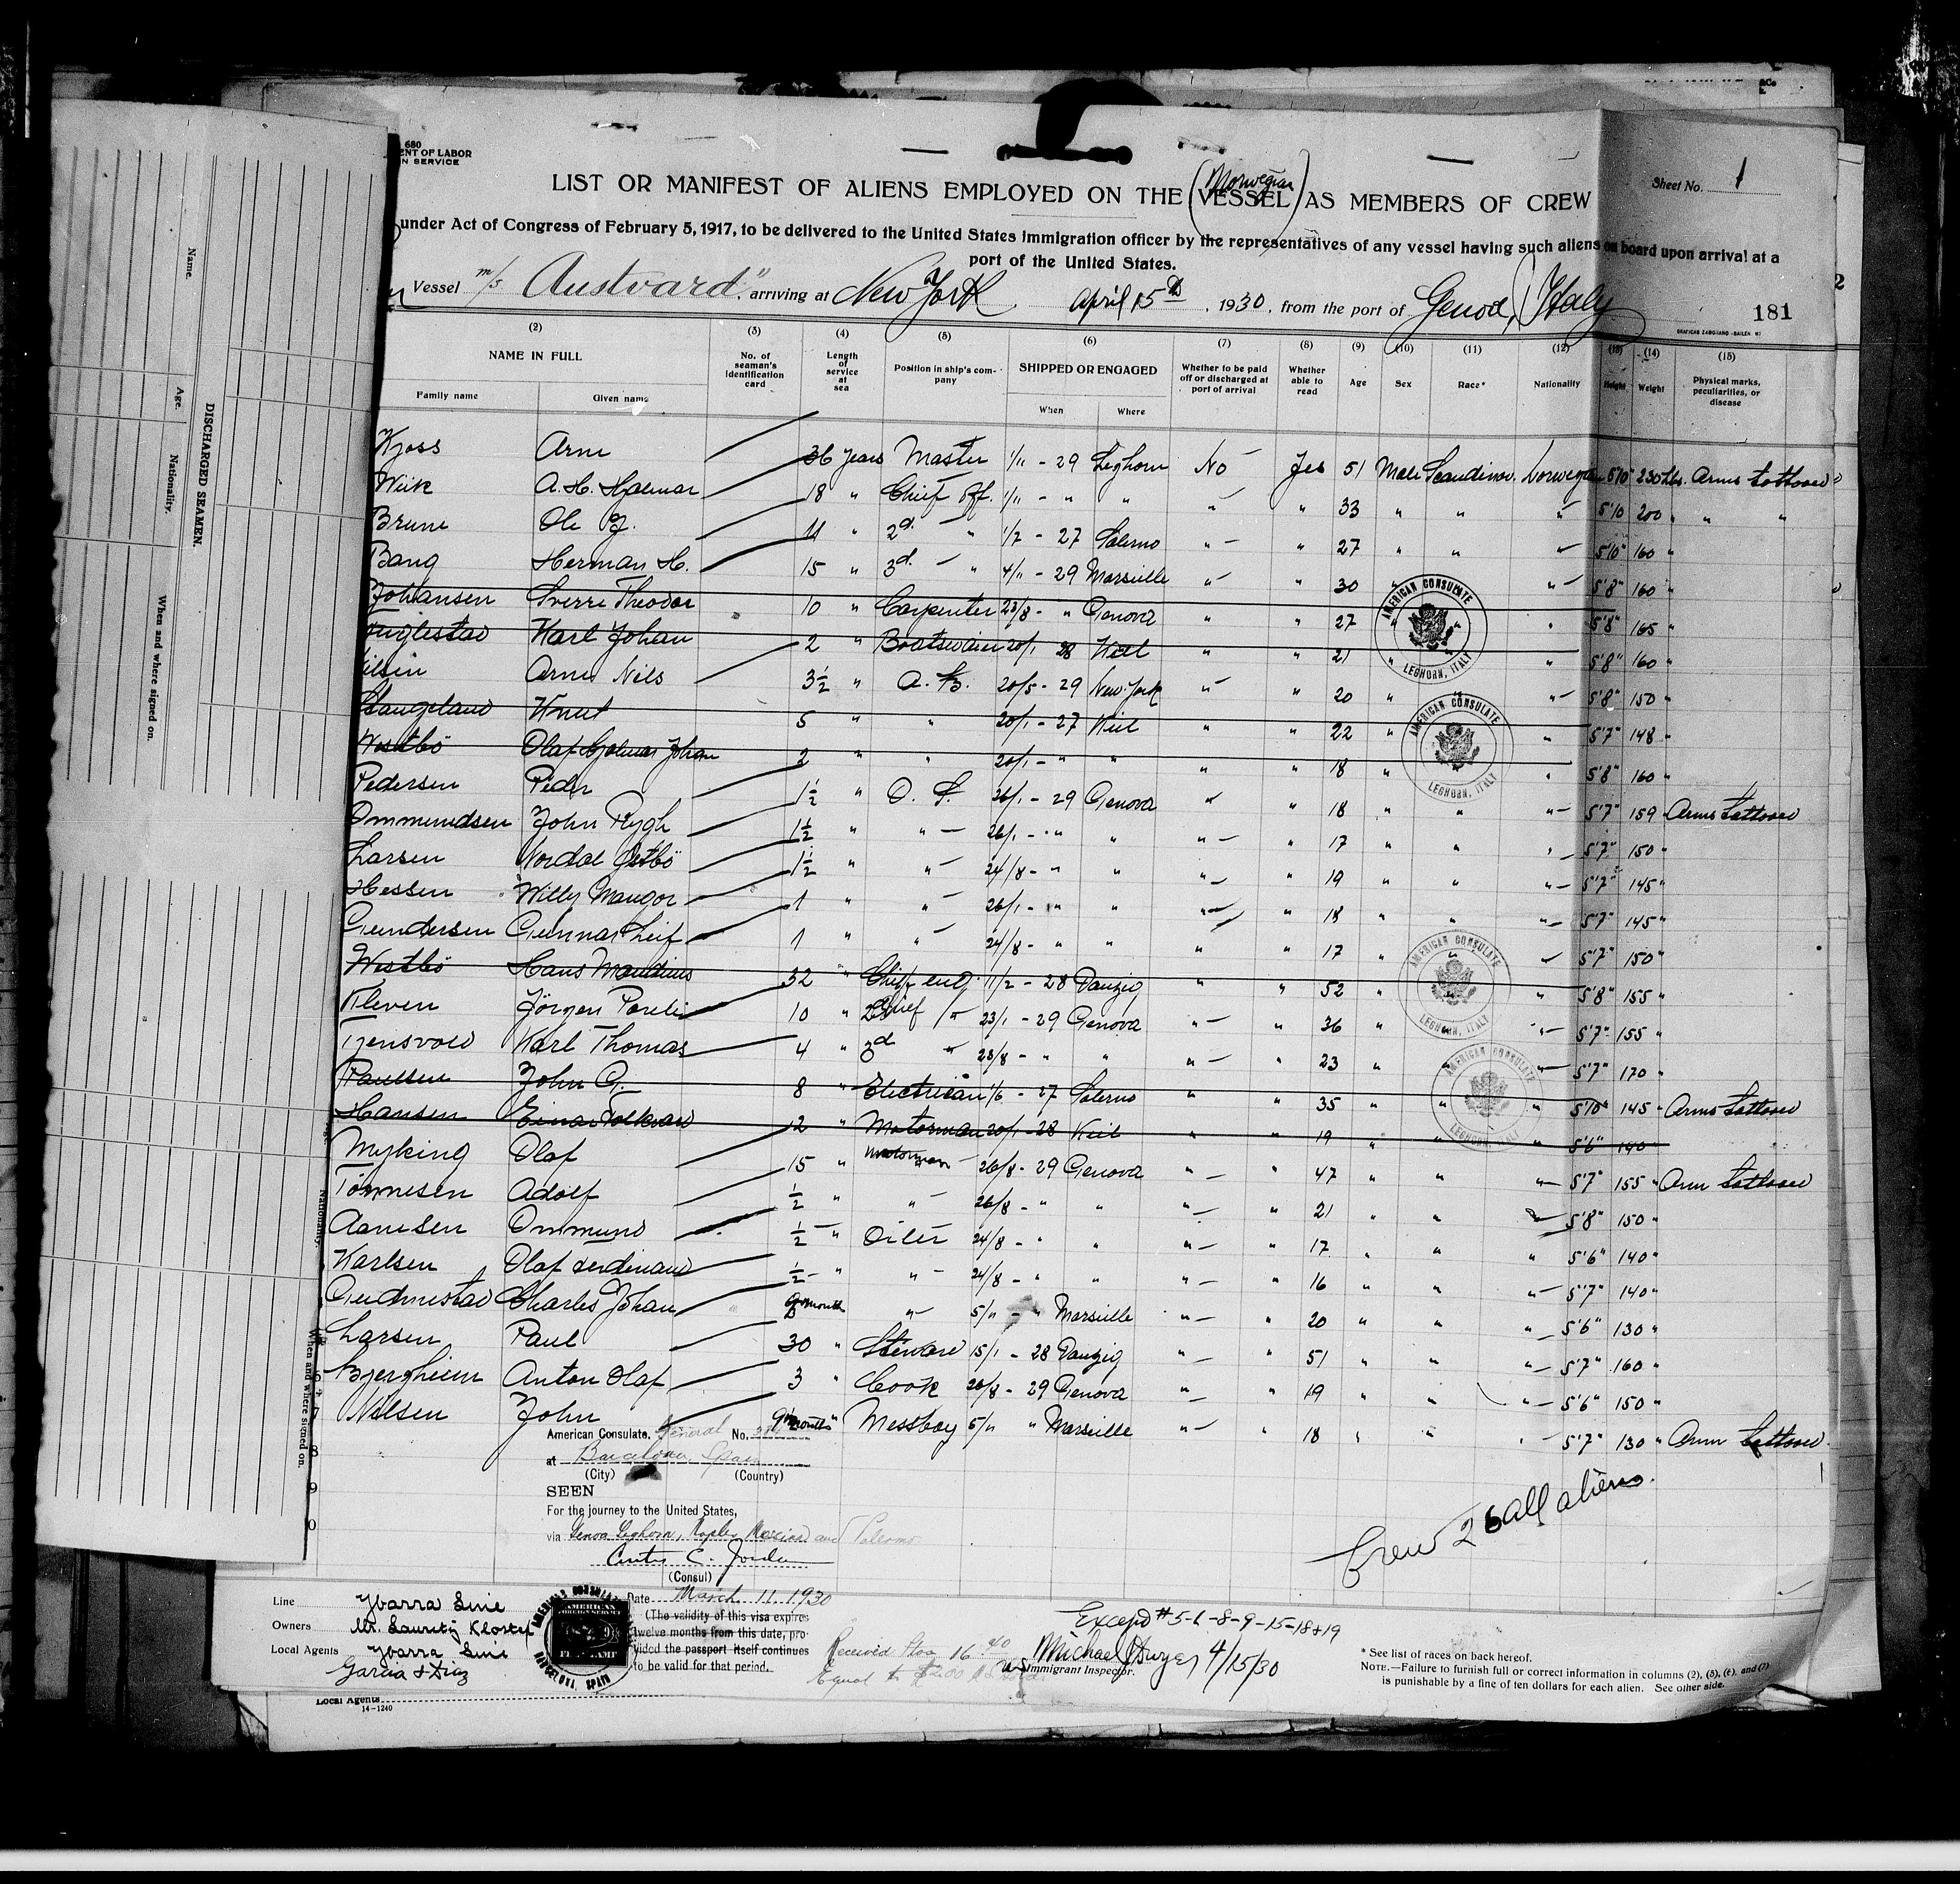 680
ENT OF LABOR
N SERVICE
Sheet No. 1
LIST OR MANIFEST OF ALIENS EMPLOYED ON THE (Norwegian VESSEL) AS MEMBERS OF CREW
under Act of Congress of February 5, 1917, to be delivered to the United States immigration officer by the representatives of any vessel having such aliens on board upon arrival at a
port of the United States.
Vessel m/s Austvard", arriving at New York April 15th, 1930, from the port of Genoa, Italy
181
(2) (3) (4) (5) (6) (7) (8) (9) (10) (11) (12) (13) (14) (15)
NAME IN FULL No. of seaman's identification card Length of service at sea Position in ship's company SHIPPED OR ENGAGED Whether to be paid off or discharged at port of arrival Whether able to read Age Sex Race* Nationality Height Weight Physical marks, peculiarities, or disease
Family name Given name When Where
Kjoss Arne 36 years Master 1/11 - 29 Leghorn No Yes 51 Male Scandinav. Norwegian 5'10" 230 lbs. Arms tattooed
Wiik A. H. Hjalmar 18 " Chief Off. 1/11 - " " " " 33 " " " 5'10 200 " " "
Brune Ole 11 " 2d. " 1/7 - 27 Salerno " " 27 " " " 5'10" 160 "
Bang Herman H. 15 " 3d. " 4/11 - 29 Marseille " " 30 " " " 5'8" 160 "
Johansen Sverre Theodor 10 " Carpenter 23/8 - " Genova " " 27 " " " 5'8" 165 "
Karl Johan 2 " Boatswain 20/1 28 Kiel " " 21 " " " 5'8" 160 "
Arne Nils 3½ " A. B. 20/5 - 29 New York " " 20 " " " 5'8" 150 "
Stangeland Knut 5 " " 20/1 - 27 Kiel " " 22 " " " 5'7" 148 "
Westbö Olaf Hjalmar Johan 2 " " 20/1 - " " " " 18 " " " 5'8" 160 "
Pedersen Peder 1½ " O. S. 26/1 - 29 Genova " " 18 " " " 5'7" 159 Arms tattooed
Ommundsen John Rygh 1½ " " 26/1 - " " " " 17 " " " 5'7" 150 "
Larsen Nordal Östbö 1½ " " 24/8 - " " " " 19 " " " 5'7" 145 "
Hessen Willy Mangor 1 " " 26/1 - " " " " 18 " " " 5'7" 145 "
Gundersen Gunnar Leif 1 " " 24/8 - " " " " 17 " " " 5'7" 150 "
Westbö Hans Maudius 32 " Chief eng. 11/2 - 28 Danzig " " 52 " " " 5'8" 155 "
Kleven Jörgen 10 " Chief " 23/1 - 29 Genova " " 36 " " " 5'7" 155 "
Tjensvold Karl Thomas 4 " 3d " 23/8 - " " " " 23 " " " 5'7" 170 "
Paulsen John G. 8 " Electrician 1/6 - 27 Salerno " " 35 " " " 5'10" 145 " Arms tattooed
Hansen Einar Folkvard 12 " Motorman 20/1 - 28 Kiel " " 19 " " " 5'6" 140 "
Myking Olaf 15 " Motorman 26/8 - 29 Genova " " 47 " " " 5'7" 155 " Arm tattooed
Tönnesen Adolf ½ " " 26/8 - " " " " 21 " " " 5'8" 150 "
Aanesen Ommund ½ " Oiler 24/8 - " " " " 17 " " " 5'6" 140 "
Karlsen Olaf Ferdinand ½ " " 24/8 - " " " " 16 " " " 5'7" 140 "
Gudmestad Charles Johan month " 5/11 - " Marseille " " 20 " " " 5'6" 130 "
Larsen Paul 30 " Steward 15/1 - 28 Danzig " " 51 " " " 5'7" 160 "
Bjergheim Anton Olaf 3 " Cook 26/8 - 29 Genova " " 19 " " " 5'6" 150 "
Nilsen John 9 months " Messboy 5/11 " Marseille " " 18 " " " 5'7" 130 " Arm tattooed
American Consulate General No.
at Barcelona, Spain
(City) (Country)
SEEN
For the journey to the United States,
via Genoa Leghorn, Naples, Messina and Palermo
Curtis C. Jordan
(Consul)
Crew 26 all aliens.
Date March 11. 1930
(The validity of this visa expires
twelve months from this date, pro-
vided the passport itself continues
to be valid for that period.
Line Ybarra Line
Owners Mr. Lauritz Kloster
Local Agents Ybarra Line
Garcia & Diaz
Received Ptas 16 40
Equal to $2.00
Except #5-6-8-9-15-18+19
Michael Dwyer 4/15/30
US Immigrant Inspector.
* See list of races on back hereof.
NOTE.—Failure to furnish full or correct information in columns (2), (5), (6), and (7)
is punishable by a fine of ten dollars for each alien. See other side.
Local Agents
14-1240
AMERICAN CONSULATE
LEGHORN, ITALY
AMERICAN CONSULATE
LEGHORN, ITALY
AMERICAN CONSULATE
LEGHORN, ITALY
AMERICAN CONSULATE
LEGHORN, ITALY
DISCHARGED SEAMEN.
Name.
Age.
Nationality.
When and where signed on.
Nationality.
When and where signed on.